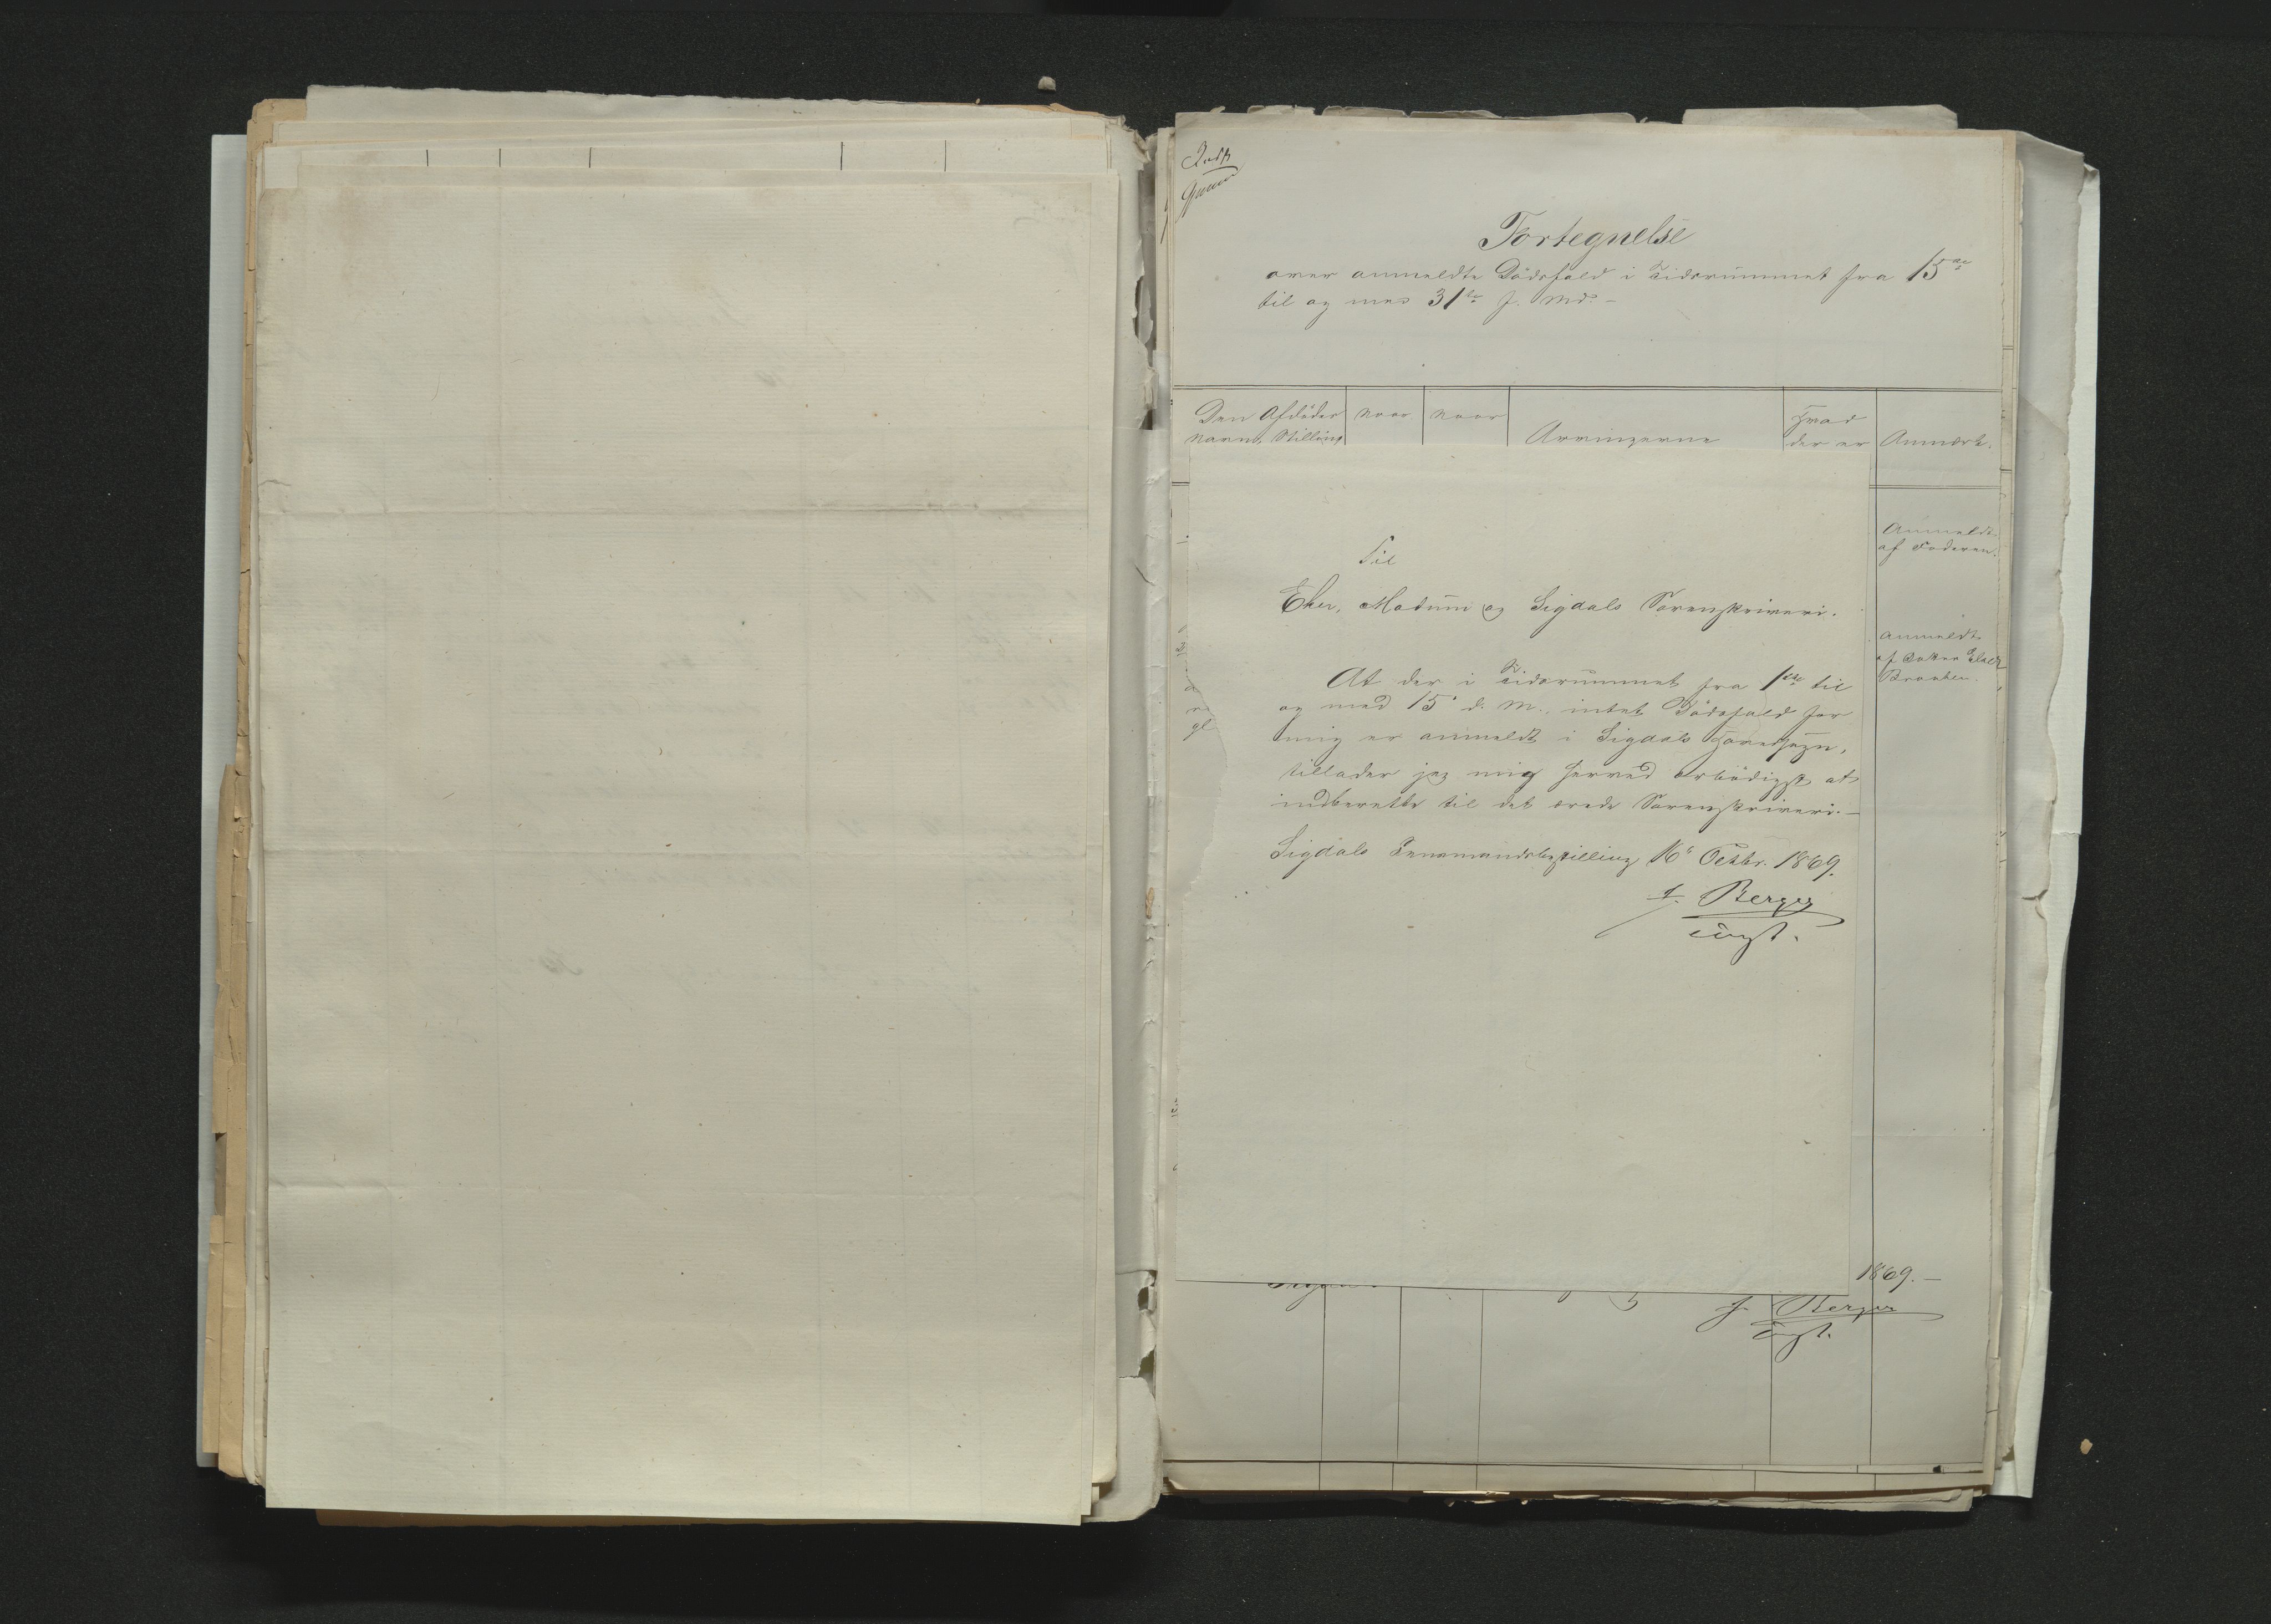 Fortegnelse
over anmeldte Dødsfald i Tidsrummet fra 15de
til og med 31te f. Md. –
Den Afdødes
Navn, Stilling
Naar
Naar
Arvingerne
Hvad
der er
Anmærk.
Anmeldt
af Faderen.
Anmeldt
af
Braaten.
Til
Eker, Modum og Sigdals Sorenskriveri.
At der i Tidsrummet fra 1ste til
og med 15de d. M. intet Dødsfald for
mig er anmeldt i Sigdals Hovedsogn,
tillader jeg mig herved ærbødigst at
indberette til det ærede Sorenskriveri. –
Sigdals Lensmandsbestilling 16de Octbr. 1869.
J. Berger
const.
1869. –
J. Berger
const.